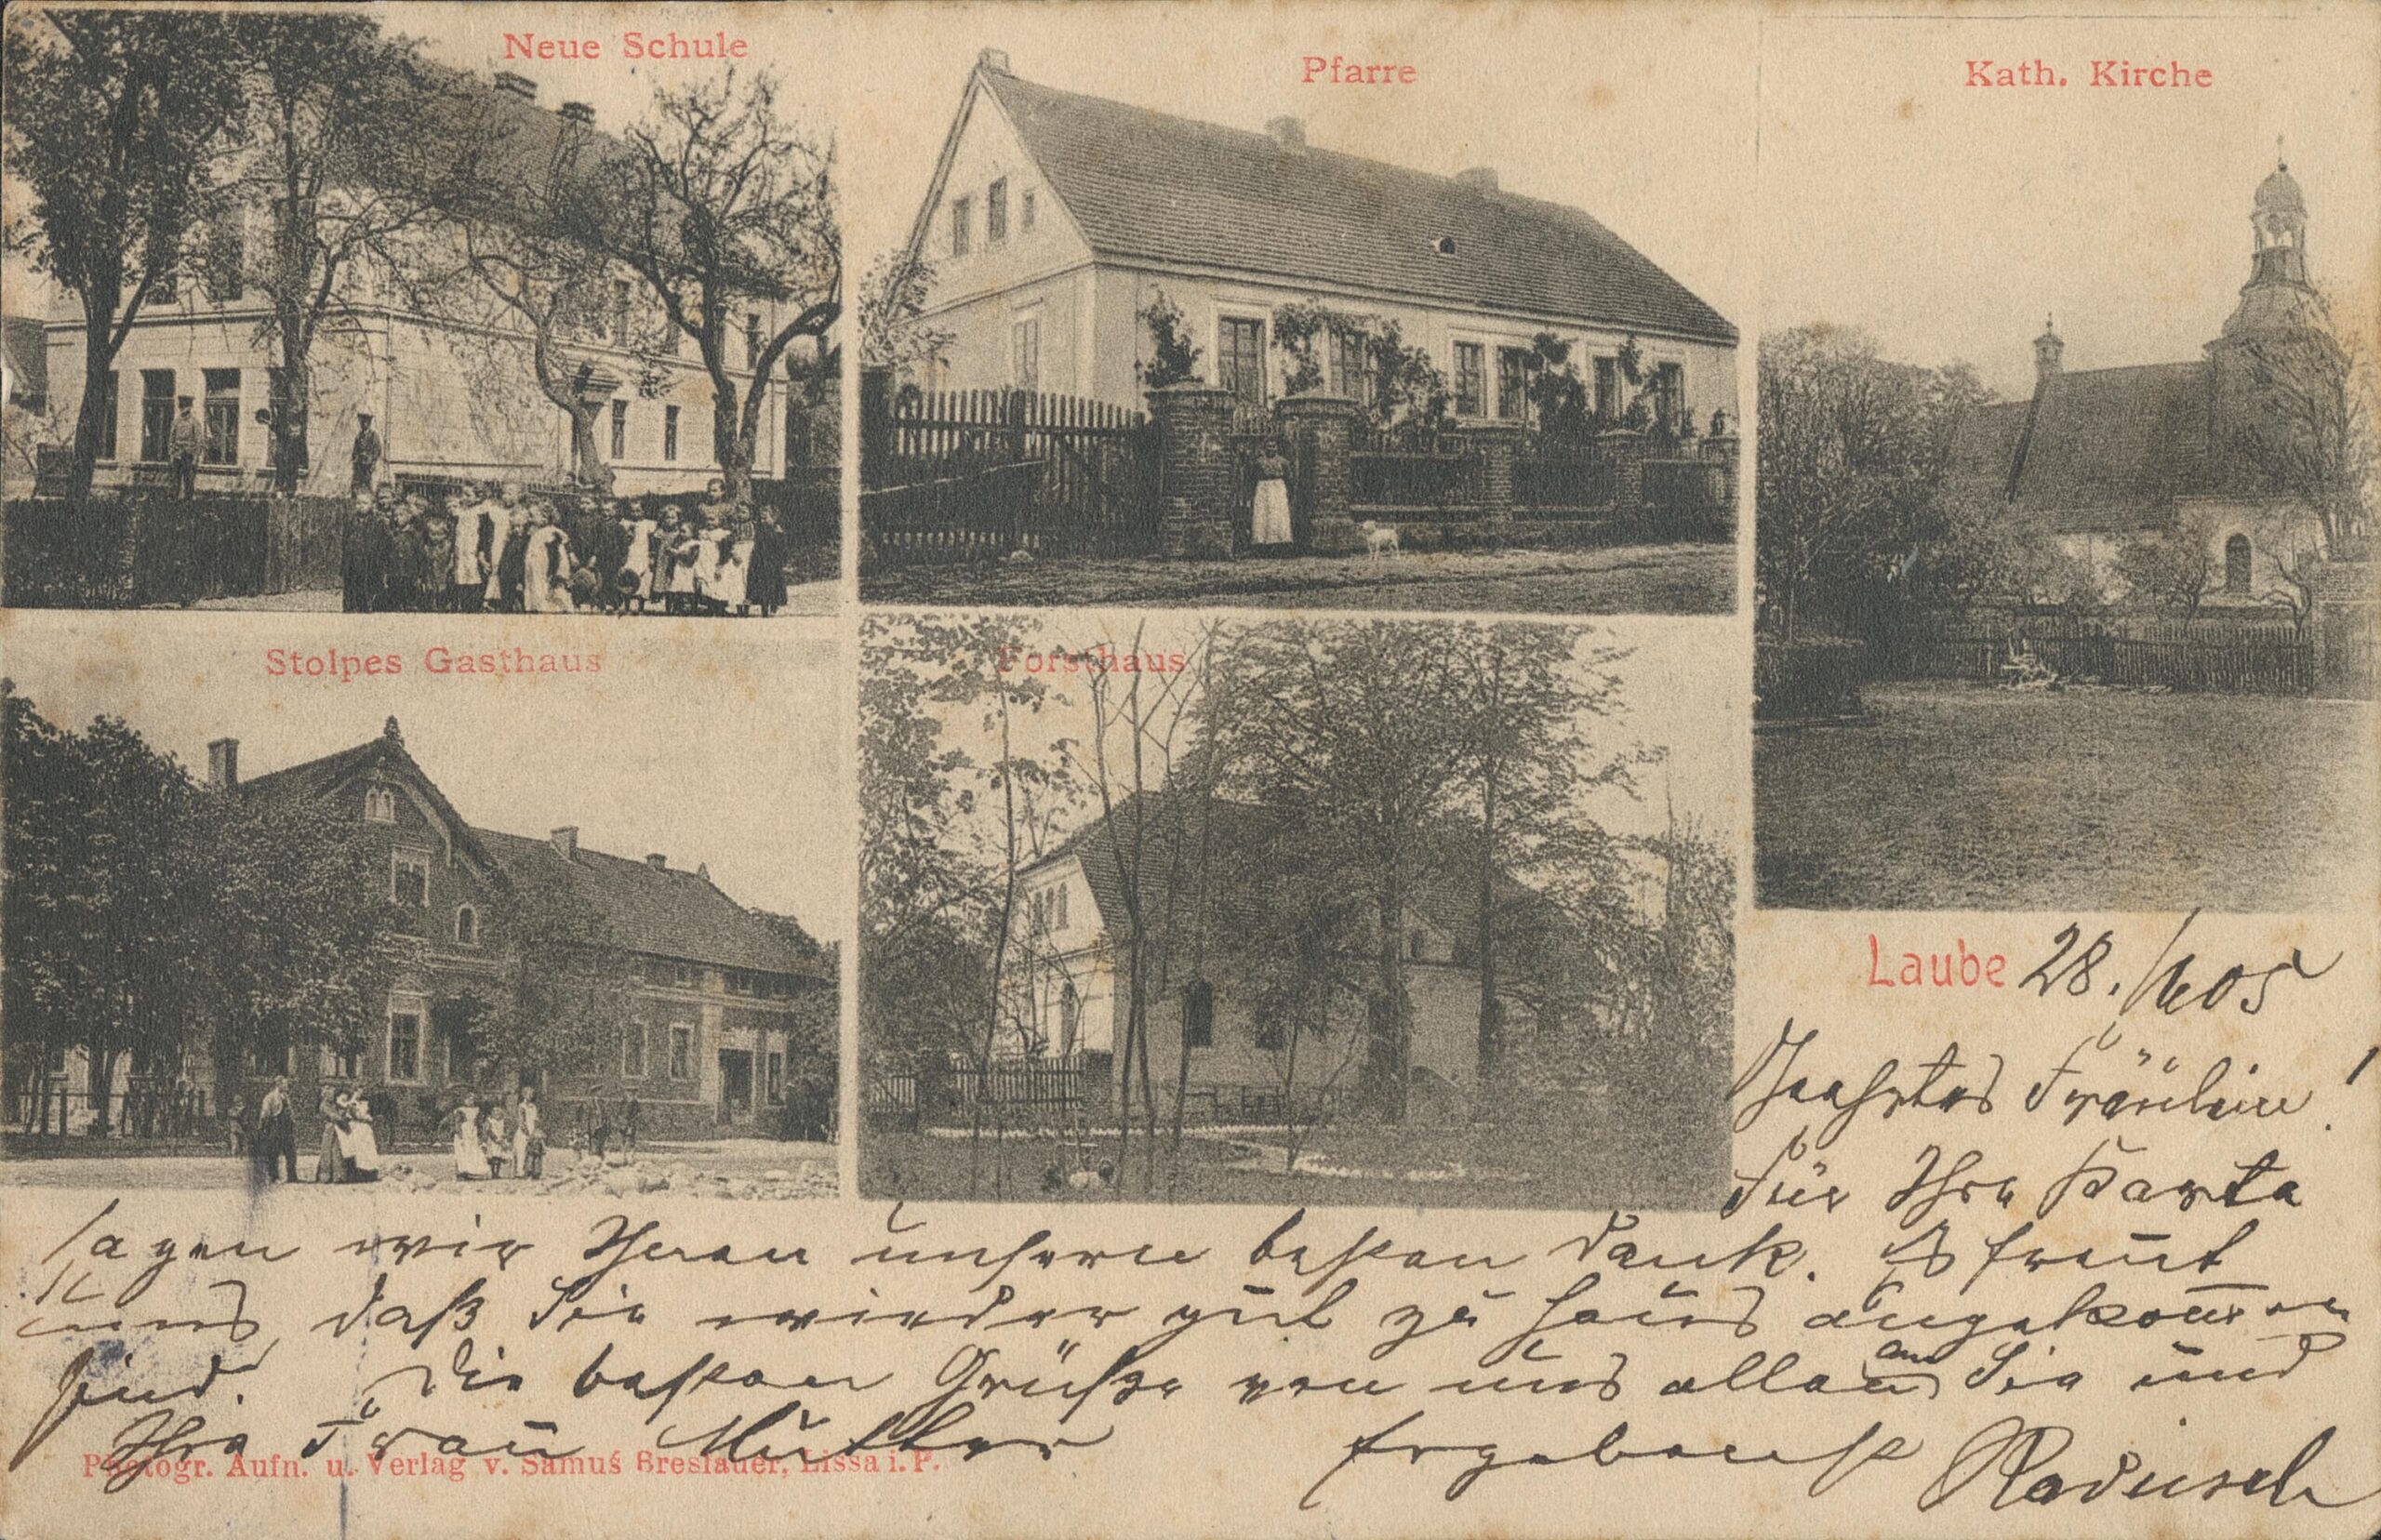 Neue Schule
Pfarre
Kath. Kirche
Stolpes Gasthaus
Forsthaus
Laube 28./ 05
Geehrtes Fräulein!
Für Ihre Karte
sagen wir Ihnen unseren besten Dank. Es freut
uns, daß Sie wieder gut zu Haus angekommen
sind. Die besten Grüße von uns allen an Sie und
Ihre Frau Mutter Ergebenst
Photogr. Aufn. u. Verlag v. Samuś Breslauer, Lissa i. P.